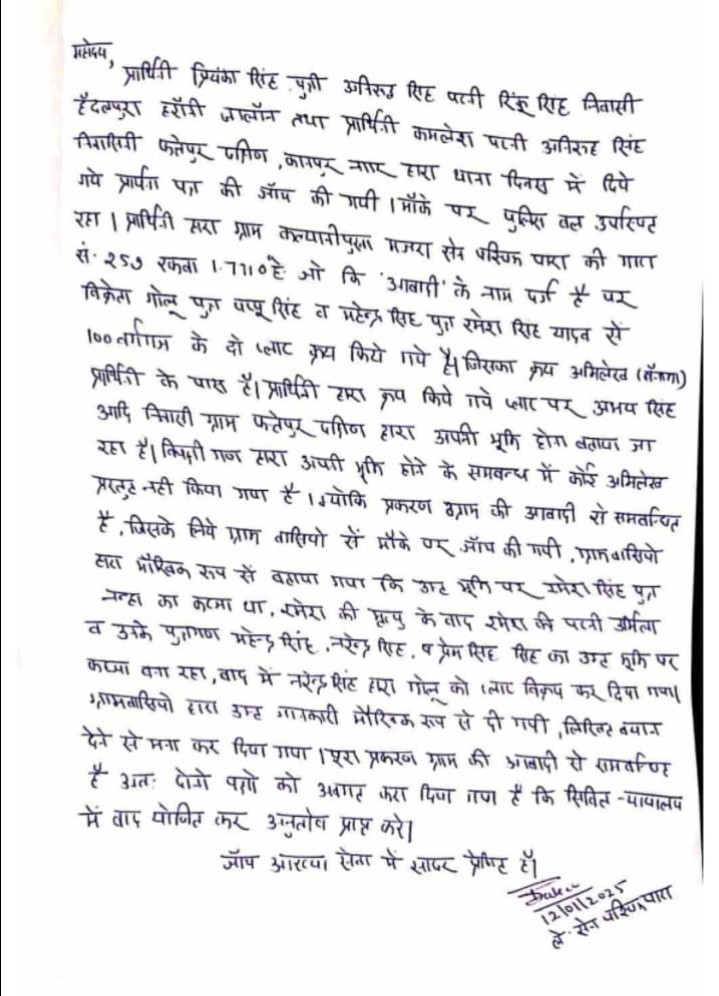 महोदय,
प्रार्थिनी प्रियंका सिंह पुत्री अनिरुद्ध सिंह पत्नी रिंकू सिंह निवासी
हैदलपुरा हरौनी जालौन तथा प्रार्थिनी कमलेश पत्नी अनिरुद्ध सिंह
निवासिनी फतेपुर दक्षिण, कानपुर नगर द्वारा थाना दिवस में दिये
गये प्रार्थना पत्र की जाँच की गयी। मौके पर पुलिस बल उपस्थित
रहा। प्रार्थिनी द्वारा ग्राम कल्यानीपुरवा मजरा सेन पश्चिम पारा की गाटा
सं. २५७ रकबा 1.7710 हे. जो कि 'आबादी' के नाम दर्ज है पर
विक्रेता गोलू पुत्र पप्पू सिंह व महेन्द्र सिंह पुत्र रमेश सिंह यादव से
100 वर्गगज के दो प्लाट क्रय किये गये है। जिसका क्रय अभिलेख
प्रार्थिनी के पास है। प्रार्थिनी द्वारा क्रय किये गये प्लाट पर अभय सिंह
आदि निवासी ग्राम फतेपुर दक्षिण द्वारा अपनी भूमि होना बताया जा
रहा है। विपक्षी गण द्वारा अपनी भूमि होने के समबन्ध में कोई अभिलेख
प्रस्तुत नही किया गया है। क्योकि प्रकरण ग्राम की आबादी से समबन्धित
है, जिसके लिये ग्राम वासियो से मौके पर जाँच की गयी, ग्रामवासियो
द्वारा मौखिक रूप से बताया गया कि उक्त भूमि पर रमेश सिंह पुत्र
नन्हा का कब्जा था, रमेश की मृत्यु के बाद रमेश की पत्नी उर्मिला
व उनके पुत्रगण महेन्द्र सिंह, नरेन्द्र सिंह, व प्रेम सिंह सिंह का उक्त भूमि पर
कब्जा बना रहा, बाद में नरेन्द्र सिंह द्वारा गोलू को प्लाट विक्रय कर दिया गया।
ग्रामवासियो द्वारा उक्त जानकारी मौखिक रूप से दी गयी, लिखित बयान
देने से मना कर दिया गया। पूरा प्रकरण ग्राम की आबादी से समबन्धित
है अतः दोनो पक्षो को अवगत करा दिया गया है कि सिविल न्यायालय
में वाद योजित कर अनुतोष प्राप्त करे।
जाँच आख्या सेवा में सादर प्रेषित है।
12/01/2025
ले. सेन पश्चिम पारा